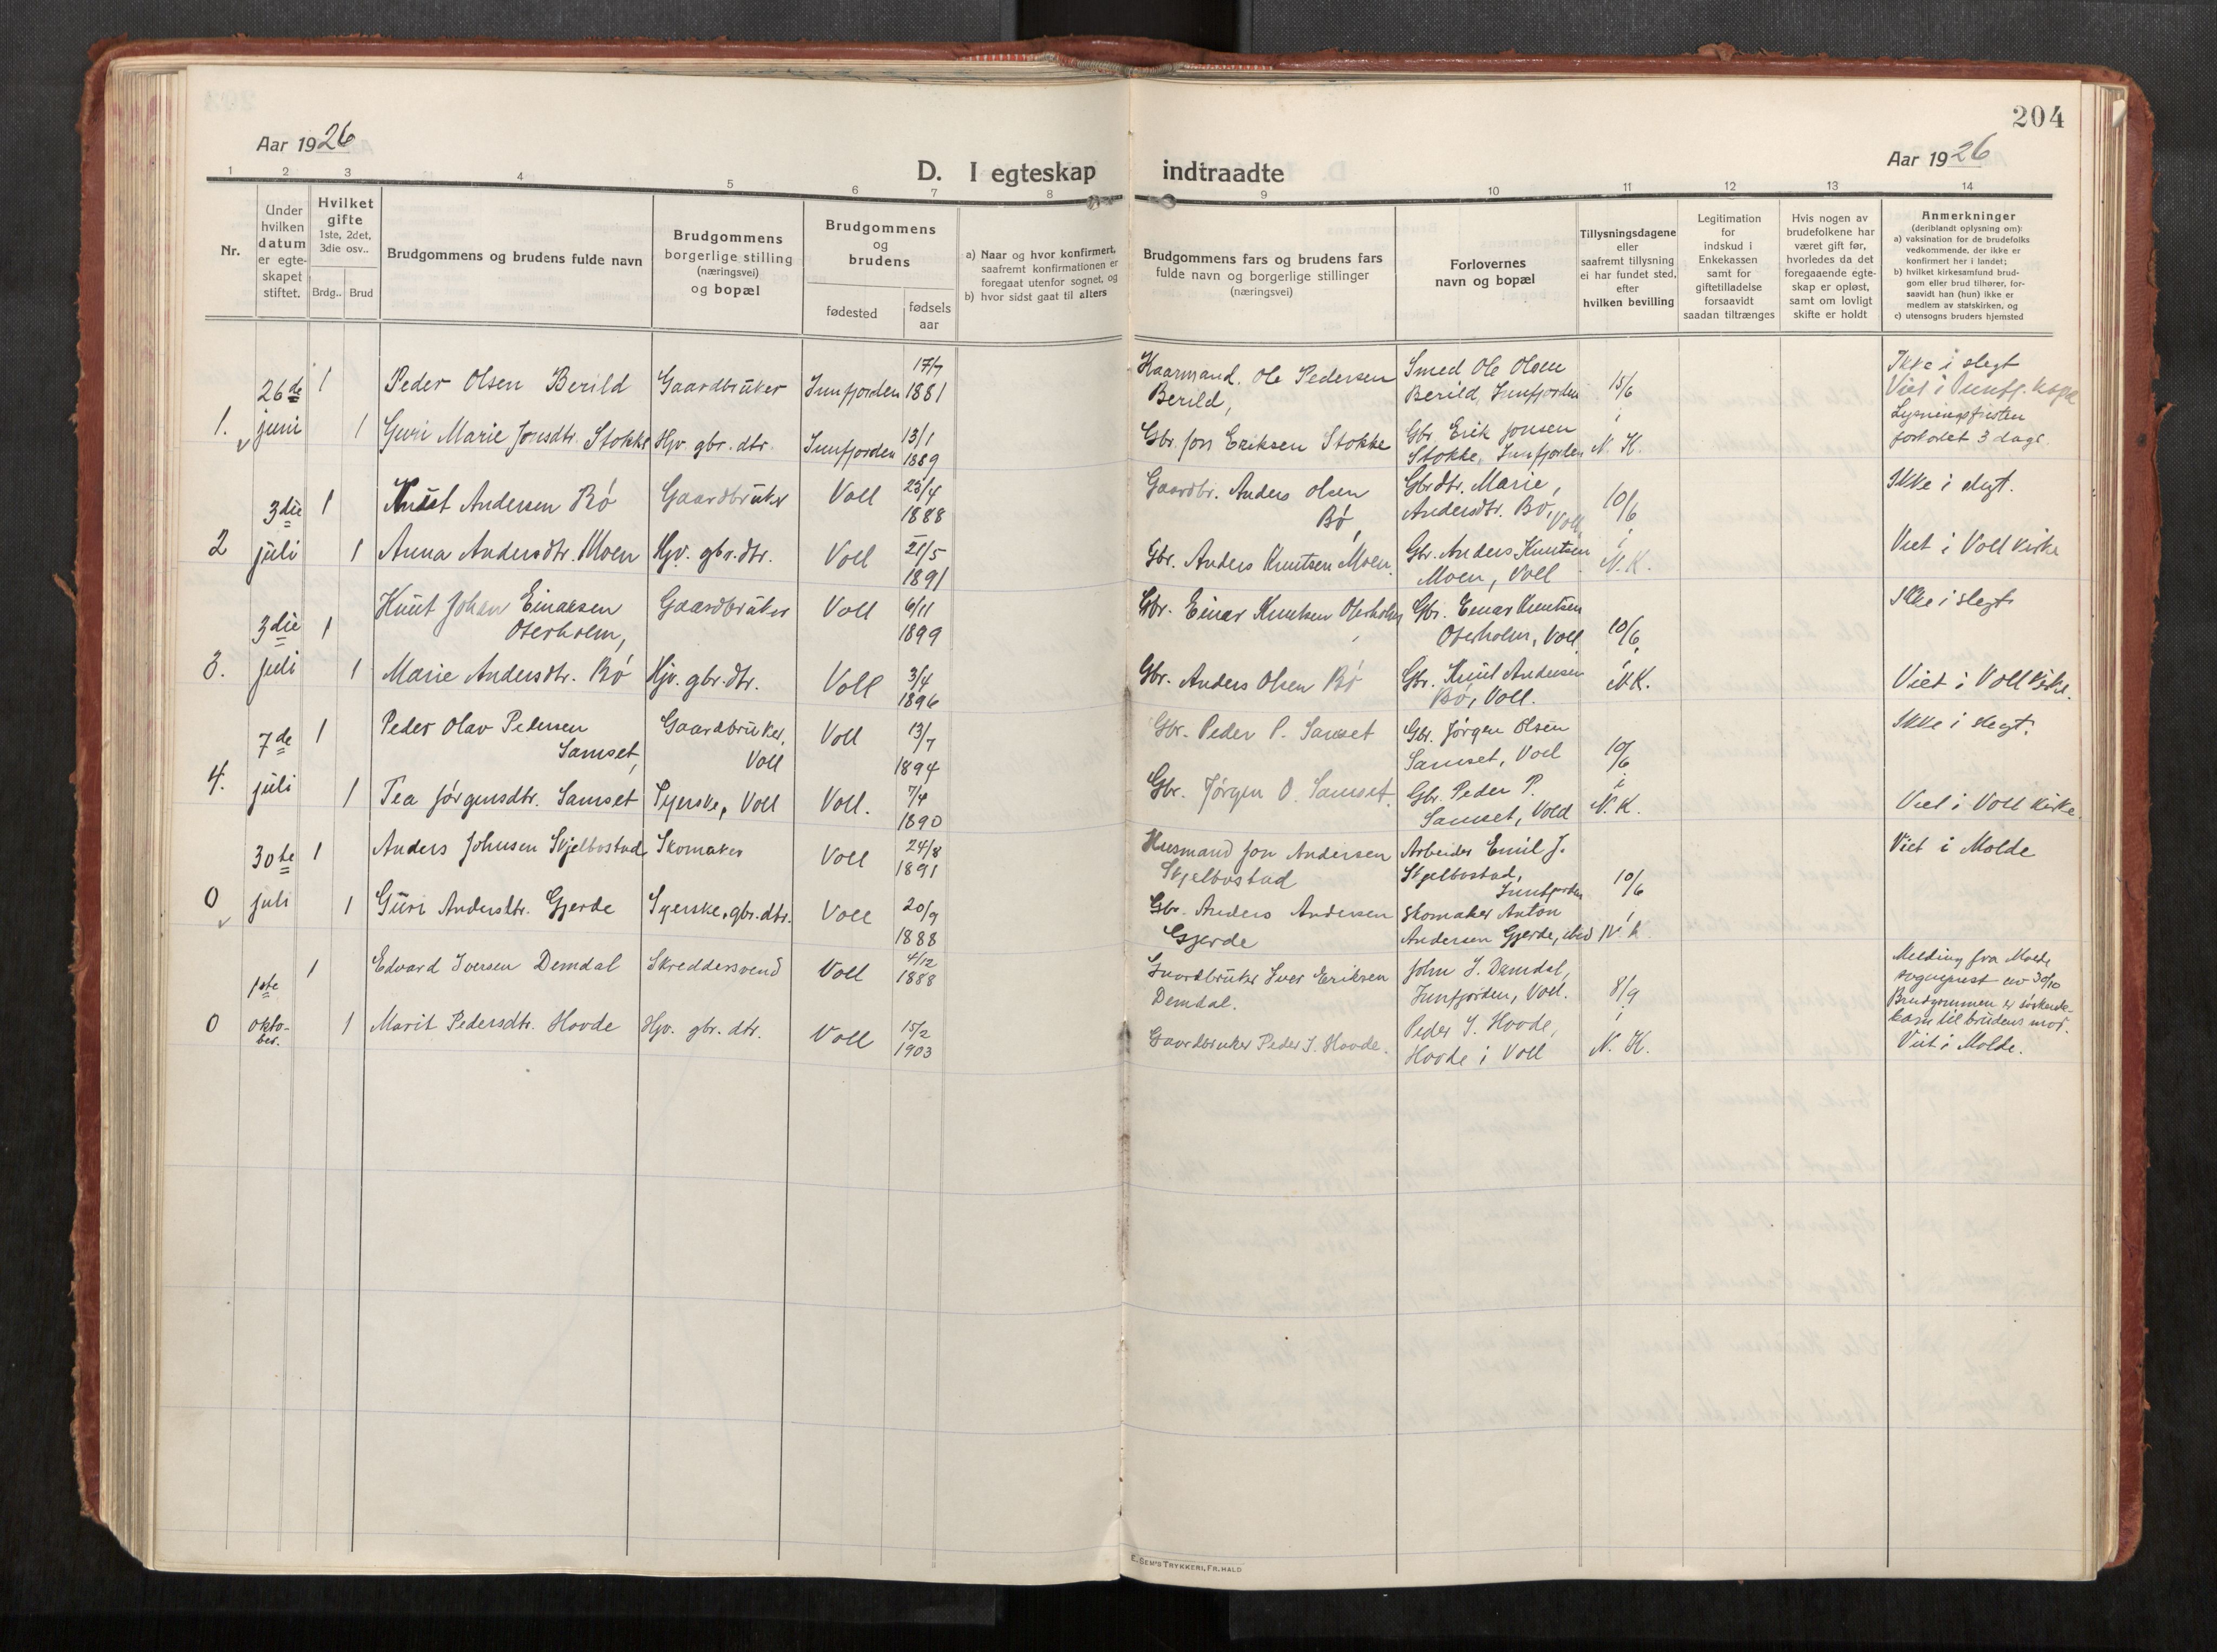 204
Aar 1926
Aar 1926
D. I egteskap indtraadte
1 2 3 4 5 6 7 8 9 10 11 12 13 14
Nr.
Under
hvilken
datum
er egte-
skapet
stiftet.
Hvilket
gifte
1ste, 2det,
3die osv..
Brdg.. Brud
Brudgommens og brudens fulde navn
Brudgommens
borgerlige stilling
(næringsvei)
og bopæl
Brudgommens
og
brudens
fødested
fødsels
aar
a) Naar og hvor konfirmert,
saafremt konfirmationen er
foregaat utenfor sognet, og
b) hvor sidst gaat til alters
Brudgommens fars og brudens fars
fulde navn og borgerlige stillinger
(næringsvei)
Forlovernes
navn og bopæl
Tillysningsdagene
eller
saafremt tillysning
ei har fundet sted,
efter
hvilken bevilling
Legitimation
for
indskud i
Enkekassen
samt for
giftetilladelse
forsaavidt
saadan tiltrænges
Hvis nogen av
brudefolkene har
været gift før,
hvorledes da det
foregaaende egte-
skap er opløst,
samt om lovligt
skifte er holdt
Anmerkninger
(deriblandt oplysning om):
a) vaksination for de brudefolks
vedkommende, der ikke er
konfirmert her i landet;
b) hvilket kirkesamfund brud-
gom eller brud tilhører, for-
saavidt han (hun) ikke er
medlem av statskirken, og
c) utensogns bruders hjemsted
1.
26de
juni
1
Peder Olsen Berild
Gaardbruker
Innfjorden
17/7
1881
Ole Pedersen
Berild,
Smed Ole Olsen
Berild, Innfjorden
15/6
Ikke i slegt
Viet i Innfj. kape
1
Guri Marie Jonsdtr. Stokke
Hjv. gbr. dtr.
Innfjorden
13/1
1889
Gbr. Jon Eriksen Stokke
Gbr. Erik Jonsen
Stokke, Innfjorden
i
N. K.
Lysningsfristen
forkortet 3 dage.
2
3die
juli
1
Knut Andersen Bø
Gaardbruker
Voll
25/4
1888
Gaardbr. Anders Olsen
Bø,
Gbrdtr. Marie,
Andersdtr. Bø, Voll
10/6
Ikke i slegt.
1
Anna Andersdtr. Moen
Hjv. gbr. dtr.
Voll
21/5
1891
Gbr. Anders Knutsen Moen.
Gbr. Anders Knutsen
Moen, Voll
i
N. K.
Viet i Voll kirke
3.
3die
juli
1
Knut Johan Einarsen
Oterholm,
Gaardbruker
Voll
6/11
1899
Gbr. Einar Knutsen Oterholm
Gbr. Einar Knutsen
Oterholm, Voll
10/6
Ikke i slegt
1
Marie Andersdtr. Bø
Hjv. gbr. dtr.
Voll
3/4
1896
Gbr. Anders Olsen Bø
Gbr. Knut Andersen
Bø, Voll.
i
N. K.
Viet i Voll kirke.
4.
7de
juli
1
Peder Olav Pedersen
Samset,
Gaardbruker,
Voll
Voll
13/7
1894
Gbr. Peder P. Samset
Gbr. Jørgen Olsen
Samset, Voll
10/6
Ikke i slegt.
1
Tea Jørgensdtr. Samset
Syerske, Voll
Voll.
7/4
1890
Gbr. Jørgen O. Samset.
Gbr. Peder P.
Samset, Vold
i
N. K.
Viet i Voll kirke.
0
30te
juli
1
Anders Johnsen Skjelbostad
Skomaker
Voll
24/8
1891
Husmand Jon Andersen
Skjelbostad
Arbeider Emil J.
Skjelbostad,
Innfjorden
10/6
Viet i Molde
1
Guri Andersdtr. Gjerde
Syerske, gbr. dtr.
Voll
20/9
1888
Gbr. Anders Andersen
Gjerde
Skomaker Anton
Andersen Gjerde, ibid
i
N. K.
0
1ste
okto-
ber.
1
Edvard Iversen Demdal
Skreddersvend
Voll
4/12
1888
Gaardbruker Iver Eriksen
Demdal.
John I. Demdal,
Innfjorden, Voll.
8/9
Melding fra Molde
sogneprest av 30/10
Brudgommen er søskende-
barn til brudens mor.
1
Marit Pedersdtr. Hovde
Hjv. gbr. dtr.
Voll
15/2
1903
Gaardbruker Peder I. Hovde.
Peder I. Hovde,
Hovde i Voll
i
N. K.
Viet i Molde.
E. Sem's Trykkeri, Fr.hald